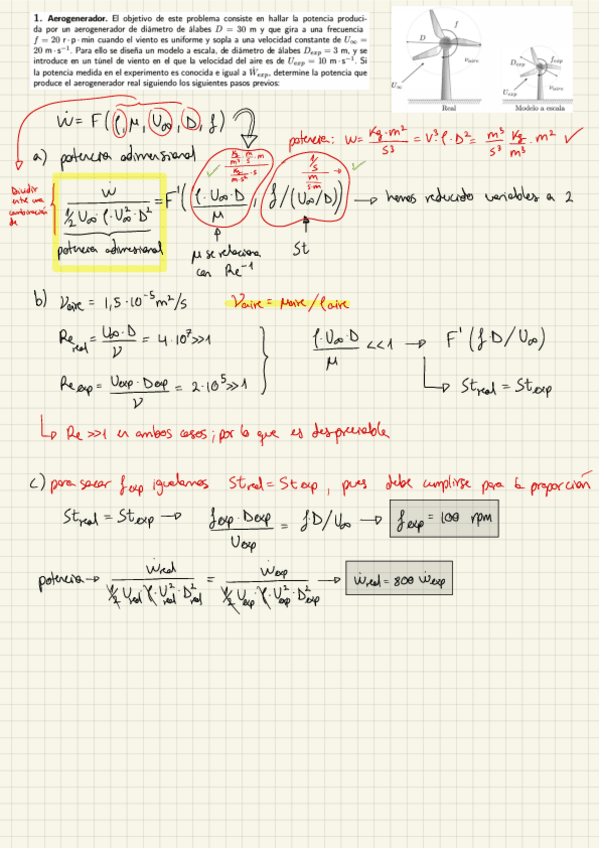 1. Aerogenerador. El objetivo de este problema consiste en hallar la potencia produci-
da por un aerogenerador de diámetro de álabes D = 30 m y que gira a una frecuencia
f = 20 r·p·min cuando el viento es uniforme y sopla a una velocidad constante de U∞ =
20 m·s⁻¹. Para ello se diseña un modelo a escala, de diámetro de álabes Dexp = 3 m, y se
introduce en un túnel de viento en el que la velocidad del aire es de Uexp = 10 m·s⁻¹. Si
la potencia medida en el experimento es conocida e igual a Ẇexp, determine la potencia que
produce el aerogenerador real siguiendo los siguientes pasos previos:
D f vaire U∞ Real
Dexp fexp vaire Uexp Modelo a escala
Ẇ = F(ρ, μ, U∞, D, f)
potencia: W = Kg·m²/s³ = V³·ρ·D² = m³/s³ Kg/m³ · m² ✓
a) potencia adimensional
Dividir entre una combinación de
Ẇ / (1/2 U∞·ρ·U∞²·D²) = F'(ρ·U∞·D/μ, f/(U∞/D)) → hemos reducido variables a 2
potencia adimensional
μ se relaciona con Re⁻¹
St
b) Vaire = 1,5·10⁻⁵ m²/s
Vaire = μaire/ρaire
Re real = U∞·D/ν = 4·10⁷ >>1
ρ·U∞·D/μ <<1 → F'(f·D/U∞)
Re exp = Uexp·Dexp/ν = 2·10⁵ >>1
↳ St real = St exp
↳ Re >>1 en ambos casos; por lo que es despreciable
c) para sacar fexp igualamos St real = St exp, pues debe cumplirse para la proporción
St real = St exp → fexp·Dexp/Uexp = f·D/U∞ → fexp = 100 rpm
potencia → Ẇreal / (1/2 Ureal·ρ·U²real·D²real) = Ẇexp / (1/2 Uexp·ρ·U²exp·D²exp) → Ẇreal = 800 Ẇexp